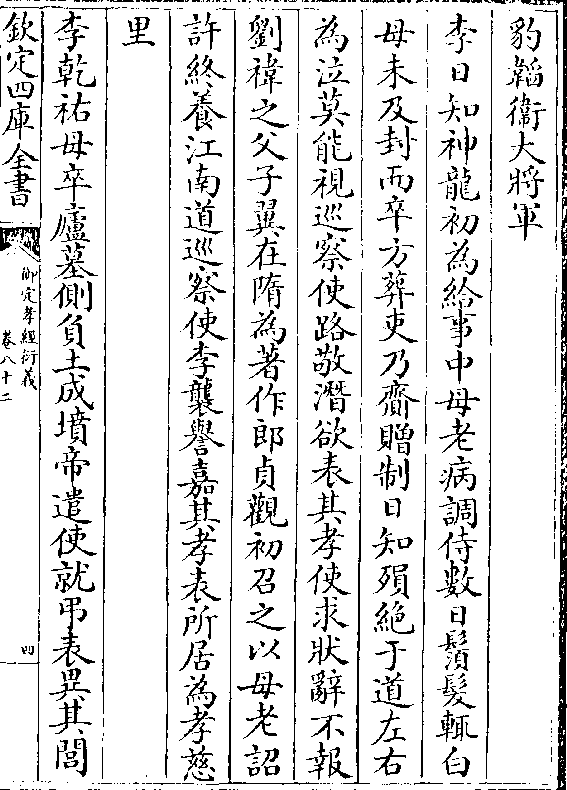 豹韜衞大將軍
李日知神龍初為給事中母老病調侍數日鬚髮輒白
母未及封而卒方葬吏乃齎贈制日知殞絶于道左右
為泣莫能視巡察使路敬潛欲表其孝使求狀辭不報
劉禕之父子翼在隋為著作郎貞觀初召之以母老詔
許終養江南道巡察使李襲譽嘉其孝表所居為孝慈
里
李乾祐母卒廬墓側負土成墳帝遣使就弔表異其閭
欽定四庫全書
御定孝經衍義
卷八十二
四